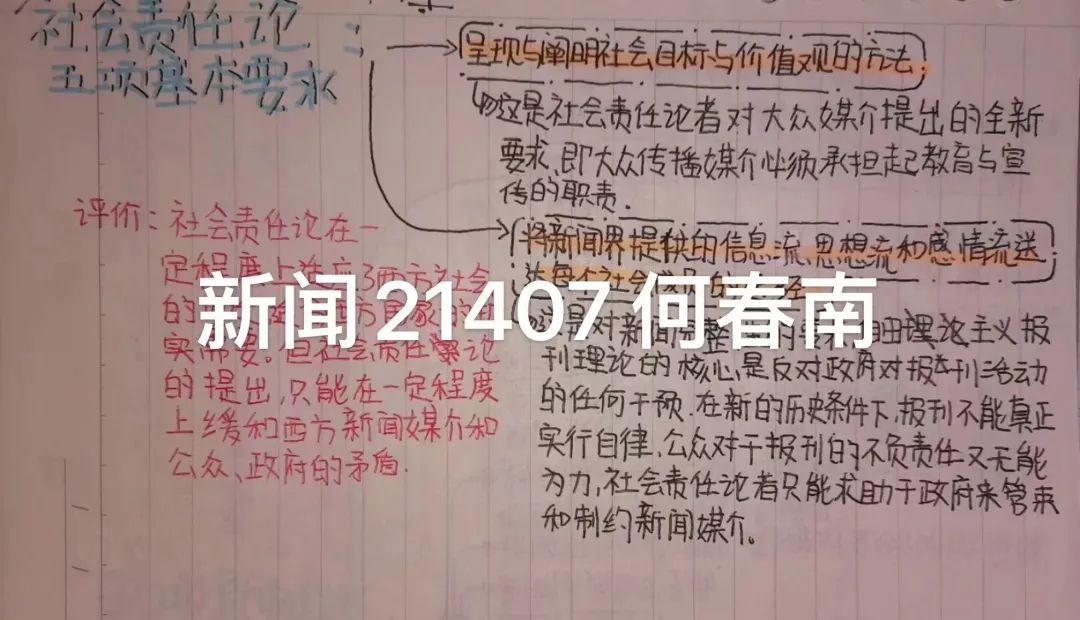 社会责任论：
五项基本要求
呈现与阐明社会目标与价值观的方法；
这是社会责任论者对大众媒介提出的全新
要求，即大众传播媒介必须承担起教育与宣
传的职责．
将新闻界提供的信息流、思想流和感情流送
达每个社会
对新闻 整 由理论主义报
刊理论的核心，是反对政府对报刊活动
的任何干预．在新的历史条件下，报刊不能真正
实行自律，公众对于报刊的不负责任又无能
为力，社会责任论者只能求助于政府来管束
和制约新闻媒介。
评价：社会责任论在一
定程度上适应了西方社会
的
实需要。但社会责任论
的提出，只能在一定程度
上缓和西方新闻媒介和
公众、政府的矛盾．
新闻 21407 何春南